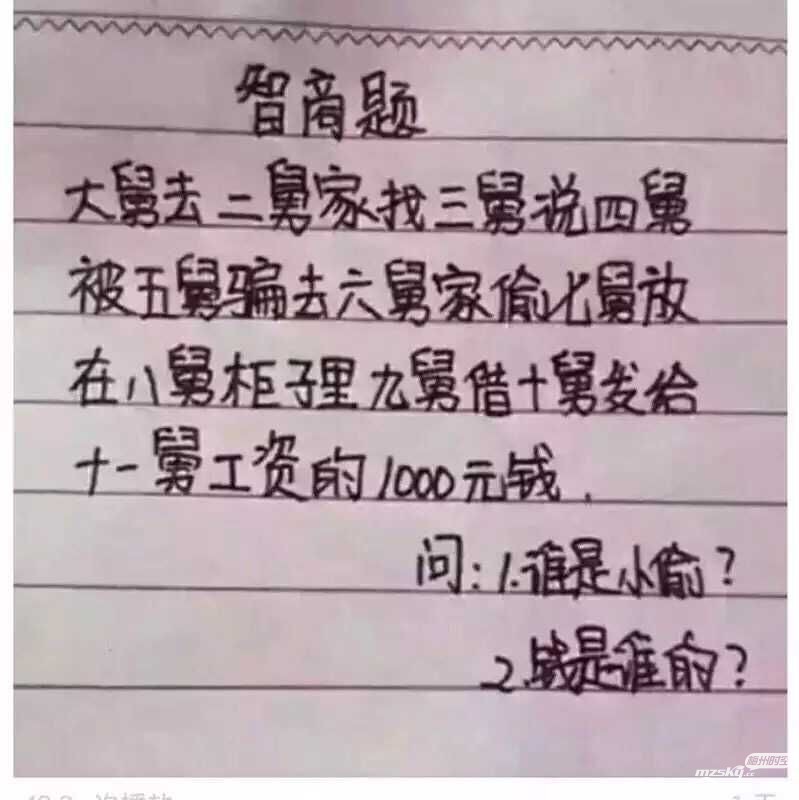 智商题
大舅去二舅家找三舅说四舅
被五舅骗去六舅家偷七舅放
在八舅柜子里九舅借十舅发给
十一舅工资的1000元钱.
问:1.谁是小偷?
2.钱是谁的?
mzsky.cc